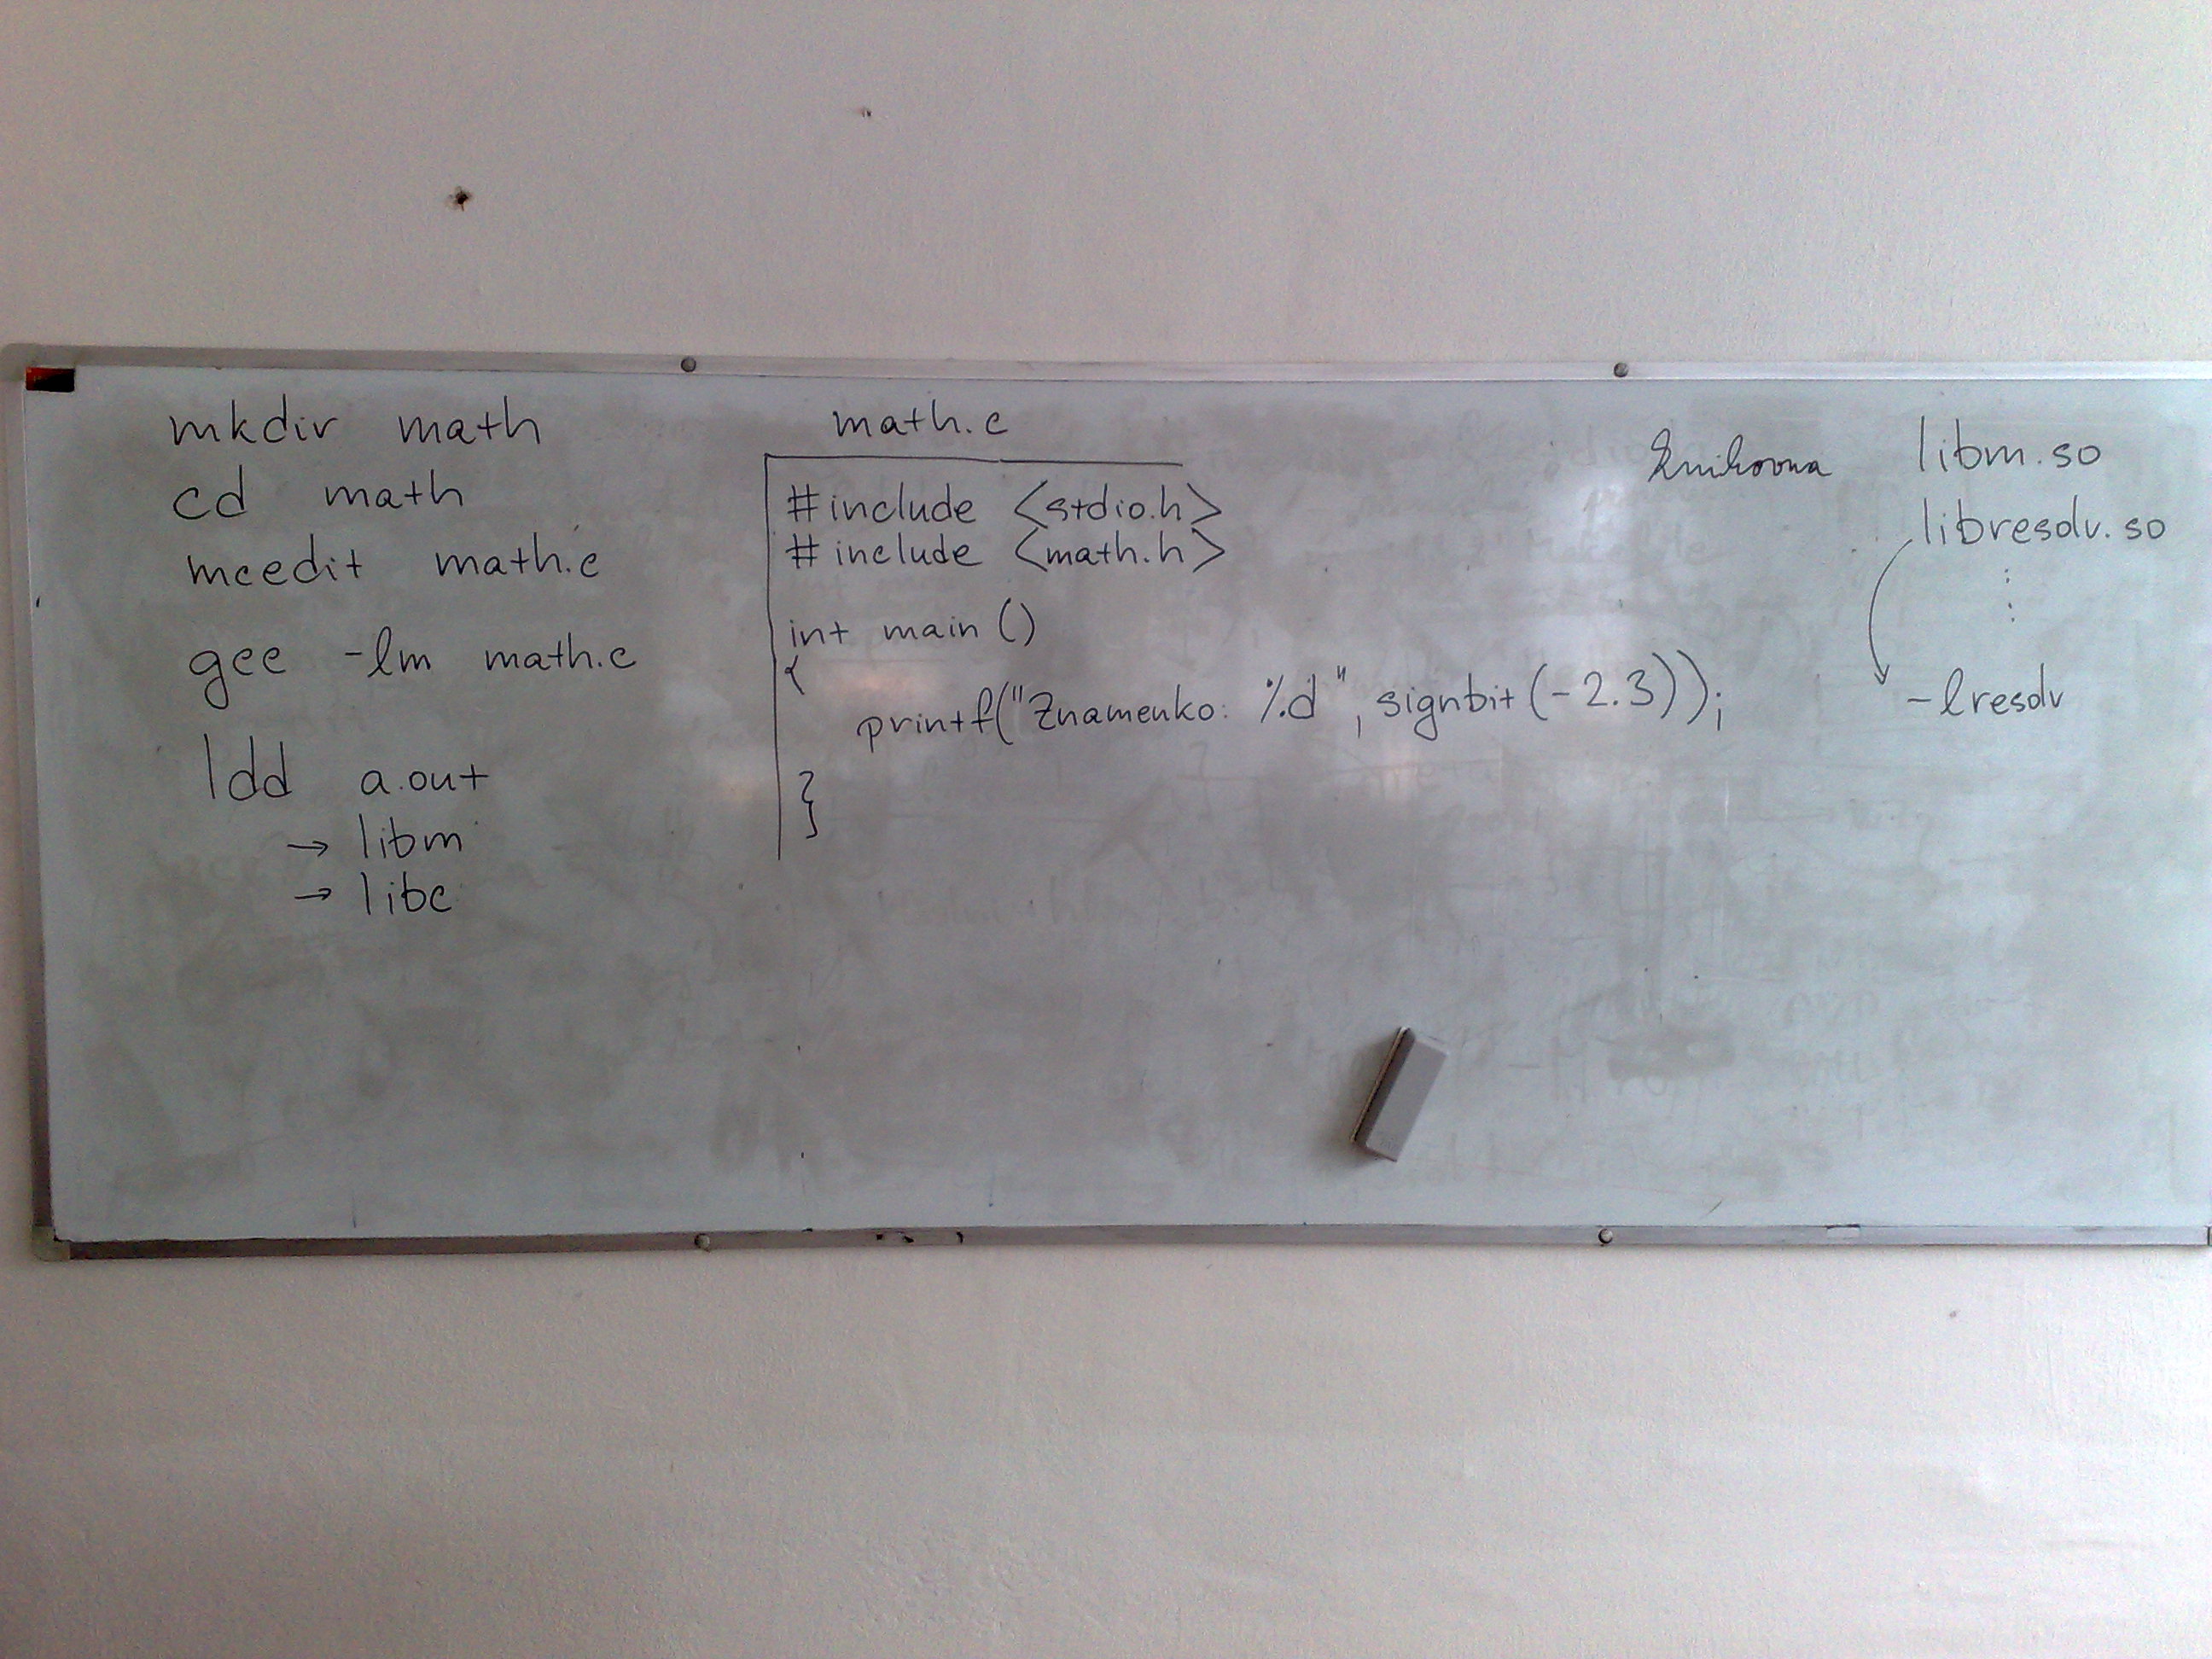 mkdir math
cd math
mcedit math.c
gcc -lm math.c
ldd a.out
→ libm
→ libc
math.c
#include <stdio.h>
#include <math.h>
int main ()
{
printf("Znamenko: %d", signbit(-2.3));
}
knihovna libm.so
libresolv.so
-lresolv